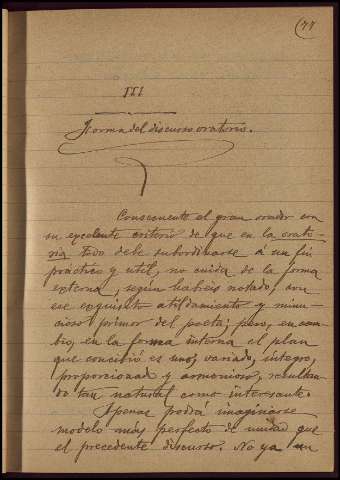 (77
III
Forma del discurso oratorio.
Consecuente el gran orador con
su excelente criterio de que en la orato-
ria todo debe subordinarse á un fin
práctico y util, no cuida de la forma
externa, según habéis notado, con
ese exquisito atildamiento y minu-
cioso primor del poeta; pero, en cam-
bio, en la forma interna el plan
que concibió es uno, variado, íntegro,
proporcionado y armonioso, resultan-
do tan natural como interesante.
Apenas podrá imaginarse
modelo más perfecto de unidad que
el precedente discurso. No ya un